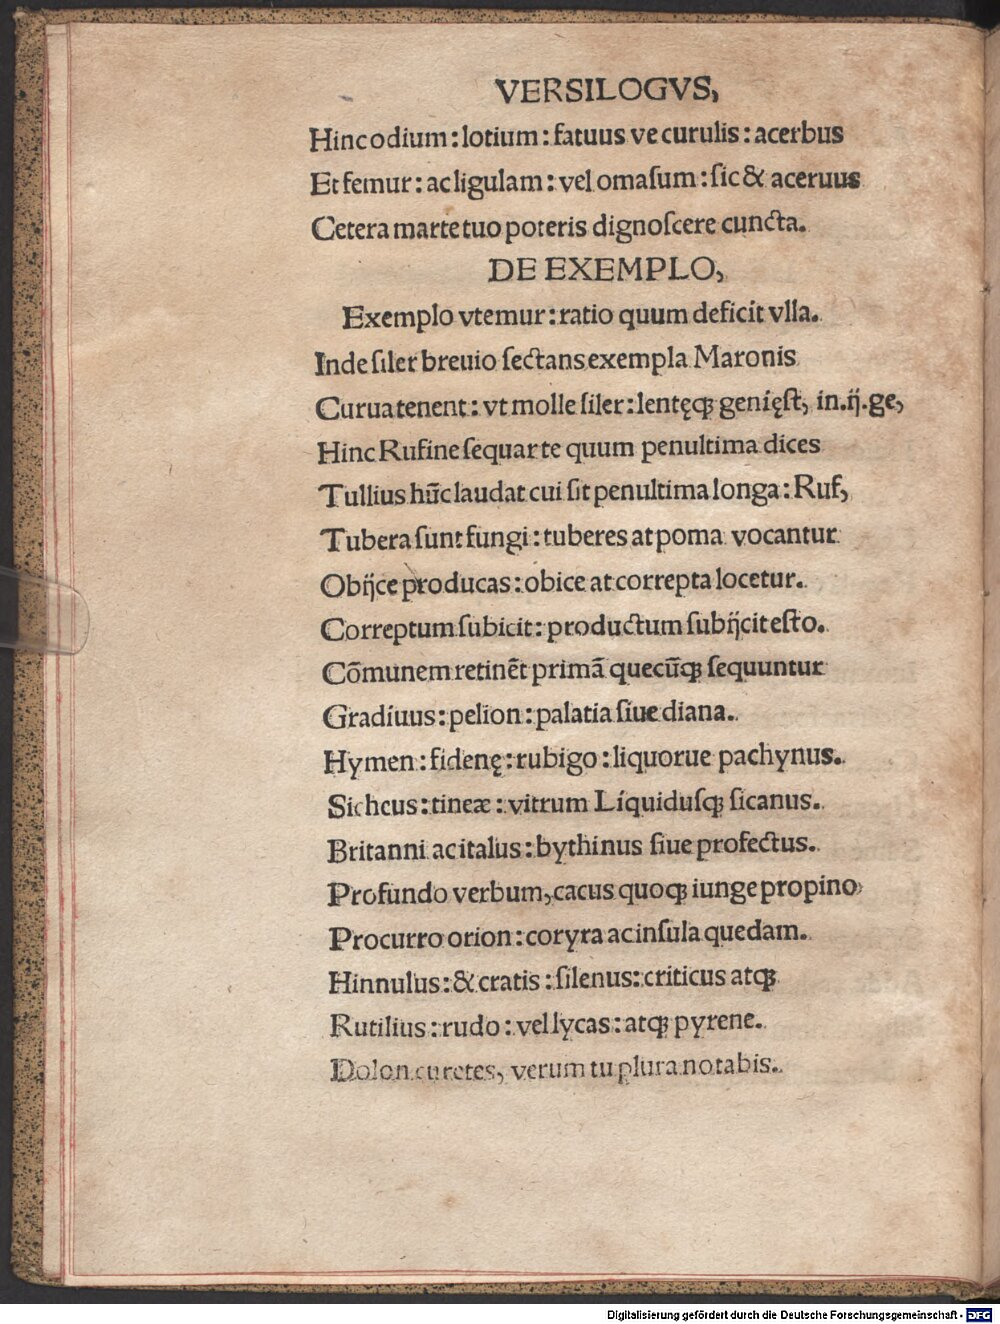 VERSILOGVS,
Hinc odium : lotium : fatuus ve curulis : acerbus
Et femur : ac ligulam : vel omaſum : ſic & aceruus
Cetera marte tuo poteris dignoſcere cuncta.
DE EXEMPLO,
Exemplo vtemur : ratio quum deficit vlla.
Inde ſiler breuio ſectans exempla Maronis
Curua tenent : vt molle ſiler : lentęq; genięſt, in.ij.ge,
Hinc Rufine ſequar te quum penultima dices
Tullius hūc laudat cui ſit penultima longa : Ruf,
Tubera ſunt fungi : tuberes at poma vocantur
Obijce producas : obice at correpta locetur.
Correptum ſubicit : productum ſubijcit eſto.
Cōmunem retinēt primā quecūq; ſequuntur
Gradiuus : pelion : palatia ſiue diana.
Hymen : fidenę : rubigo : liquorue pachynus.
Sicheus : tineæ : vitrum Liquiduſq; ſicanus.
Britanni ac italus : bythinus ſiue profectus.
Profundo verbum, cacus quoq; iunge propino
Procurro orion : coryra ac inſula quedam.
Hinnulus : & cratis : ſilenus : criticus atq;
Rutilius : rudo : vel lycas : atq; pyrene.
Dolon curetes, verum tu plura notabis.
Digitalisierung gefördert durch die Deutsche Forschungsgemeinschaft - DFG